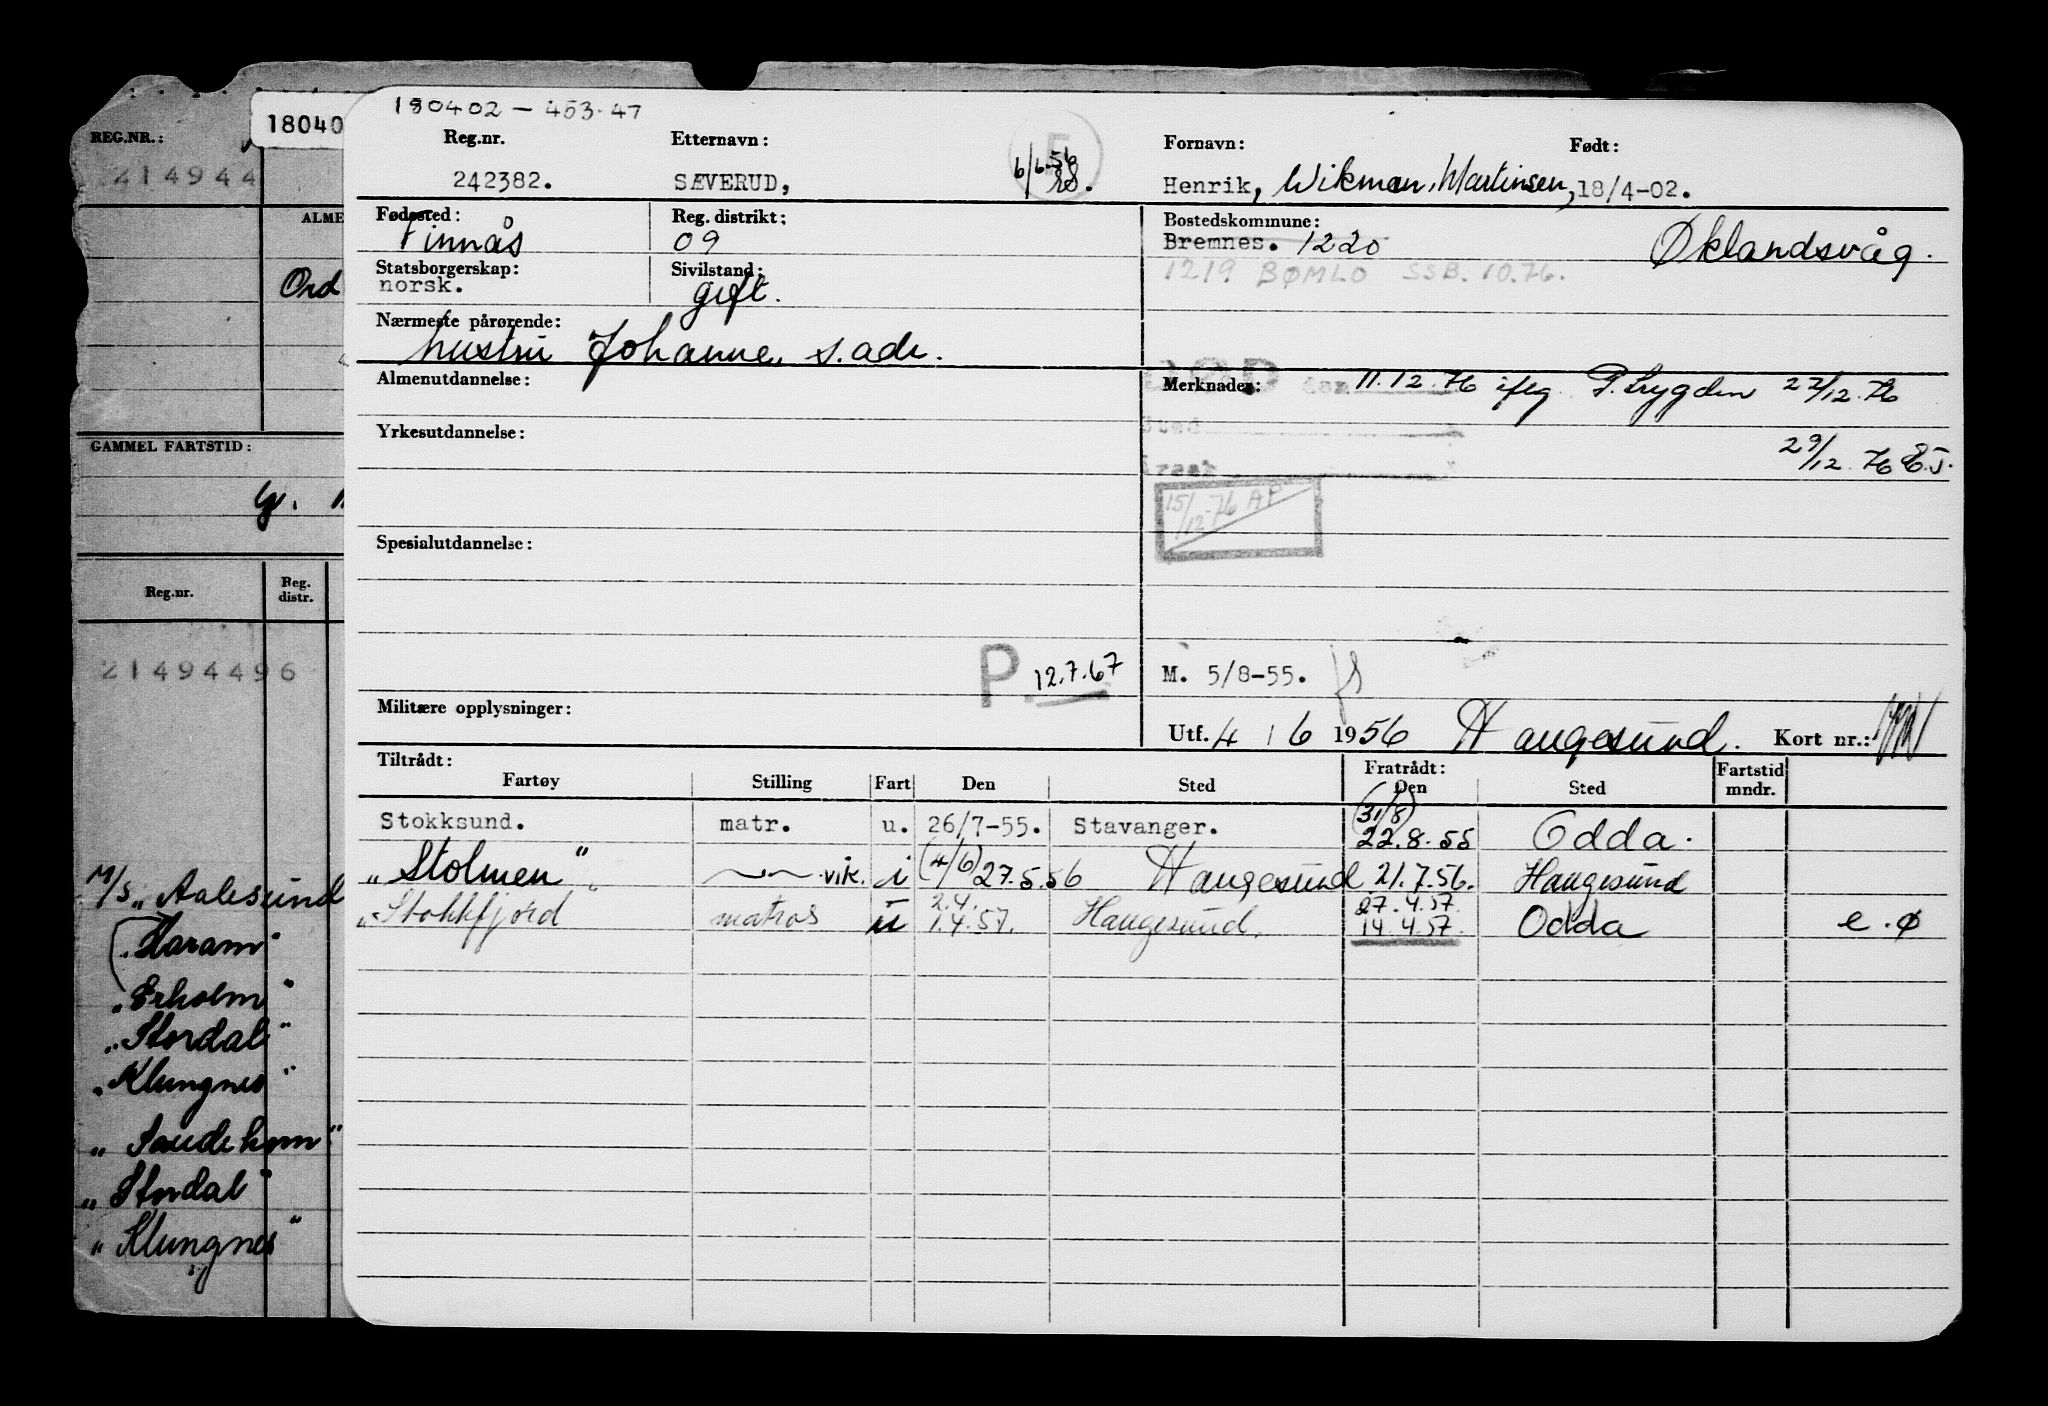 180402 — 453.47
REG.NR.:
18040
Reg.nr. Etternavn: Fornavn: Født:
214944
242382. SÆVERUD, 6/6.56 Henrik, Wikman, Martinsen, 18/4-02.
ALME
Fødested: Reg. distrikt: Bostedskommune:
Finnås 09 Bremnes. 1220 Øklandsvåg.
Statsborgerskap: Sivilstand: 1219 BØMLO SSB. 10.76.
norsk. gift.
Ord
Nærmeste pårørende:
hustru Johanne, s. adr.
Almenutdannelse: Merknader: DØD den 11.12.76 iflg. P.trygden 22/12.76
Yrkesutdannelse: Sted
29/12.76 E.J.
GAMMEL FARTSTID:
Årsak
15/12-76 AP
Spesialutdannelse:
Reg.nr. Reg. distr.
21494496
P. 12.7.67 M. 5/8-55.
Militære opplysninger: Utf. 4 / 6 1956 Haugesund. Kort nr.:
Tiltrådt: Fratrådt: Fartstid mndr.
Fartøy Stilling Fart Den Sted Den Sted
(31/8)
Stokksund. matr. u. 26/7-55. Stavanger. 22.8.55 Odda.
"Stolmen" —"— vik. i (4/6) 27.5.56 Haugesund 21.7.56. Haugesund
2.4. 27.4.57.
"Stokkfjord matros u 1.4.57. Haugesund. 14.4.57. Odda e.ø
M/S "Aalesund
"Haram"
"Erholm"
"Stordal"
"Klungnes"
"Saudehorn"
"Stordal"
"Klungnes"